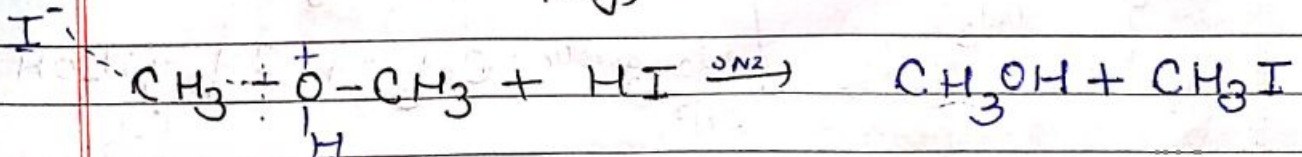 I⁻
CH₃ --- O⁺ - CH₃ + HI SN2 → CH₃OH + CH₃I
H